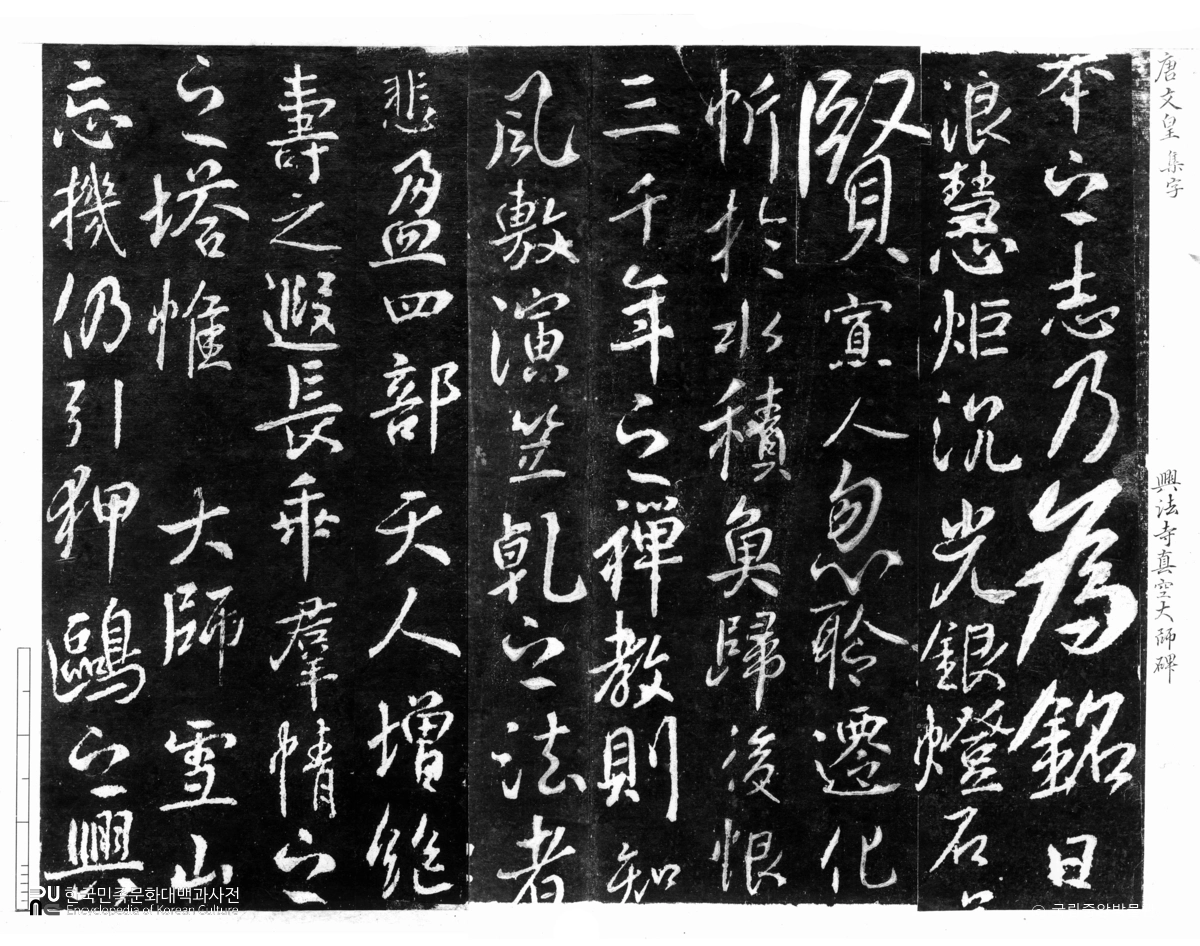 唐文皇 集字
興法寺真空大師碑
本之志乃為銘曰
浪慧炬沉光銀燈石
賢寡人忽聆遷化
忻於水積魚歸後恨
三千年之禪教則知
風敷演竺乾之法者
悲盈四部天人增絶
壽之遐長乖羣情之
之塔惟 大師雪山
忘機仍引狎鷗之興
한국민족문화대백과사전
Encyclopedia of Korean Culture